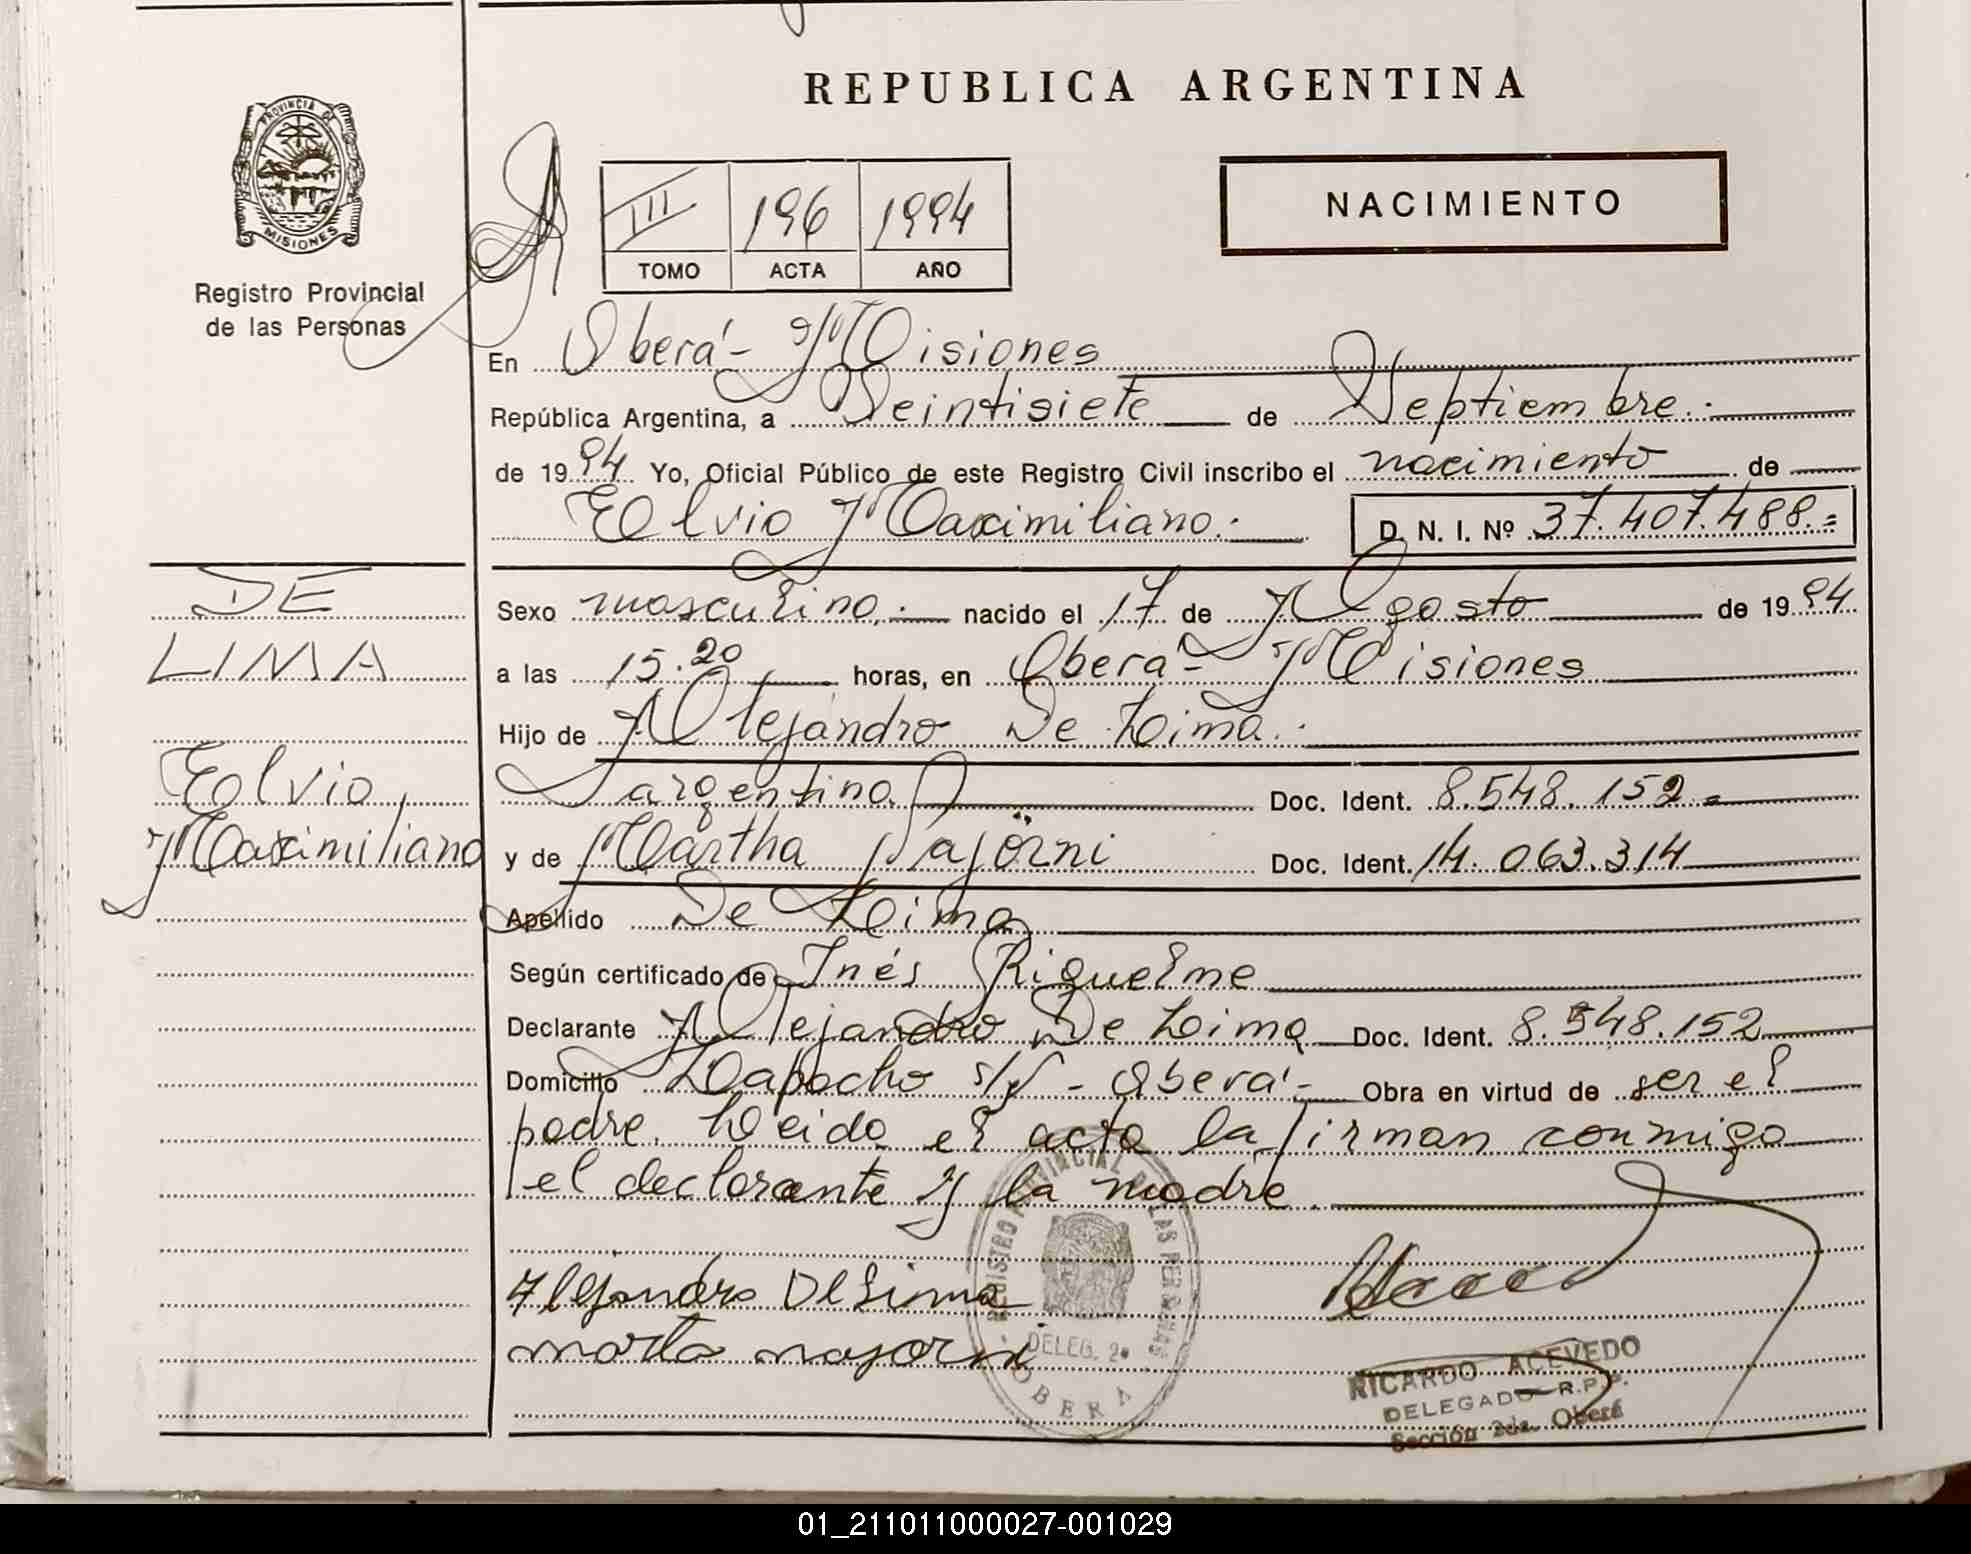 REPUBLICA ARGENTINA
PROVINCIA DE
MISIONES
Registro Provincial
de las Personas
III 196 1994
TOMO ACTA AÑO
NACIMIENTO
En Oberá - Misiones
República Argentina, a Veintisiete de Septiembre.-
de 1994 Yo, Oficial Público de este Registro Civil inscribo el nacimiento de
Elvio Maximiliano.- D. N. I. Nº 37.407.488.=
DE
LIMA
Elvio,
Maximiliano
Sexo masculino.- nacido el 17 de Agosto de 1994
a las 15.20 horas, en Oberá - Misiones
Hijo de Alejandro De Lima.-
argentino Doc. Ident. 8.548.152.=
y de Martha Doc. Ident. 14.063.314
Apellido De Lima
Según certificado de Inés Riquelme
Declarante Alejandro De Lima Doc. Ident. 8.548.152
Domicilio Lapacho s/n - Oberá - Obra en virtud de ser el
padre. Leida el acta la firman conmigo
el declarante y la madre.
Alejandro De Lima
marta
REGISTRO PROVINCIAL DE LAS PERSONAS
DELEG. 2a
OBERA
RICARDO ACEVEDO
DELEGADO R.P.P.
Sección 2da. Oberá
01_211011000027-001029